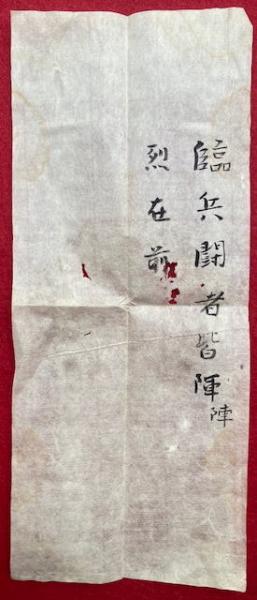 臨兵闘者皆陣陣
烈在前